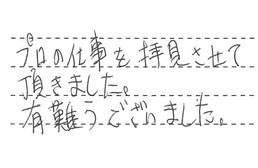 プロの仕事を拝見させて
頂きました。
有難うございました。